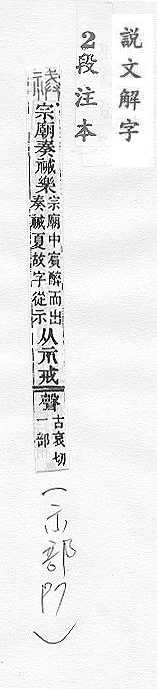 說文解字
2段注本
祴 宗廟奏祴樂
宗廟中賓醉而出
奏祴夏故字從示
从示戒聲
古哀切
一部
(示部P7)